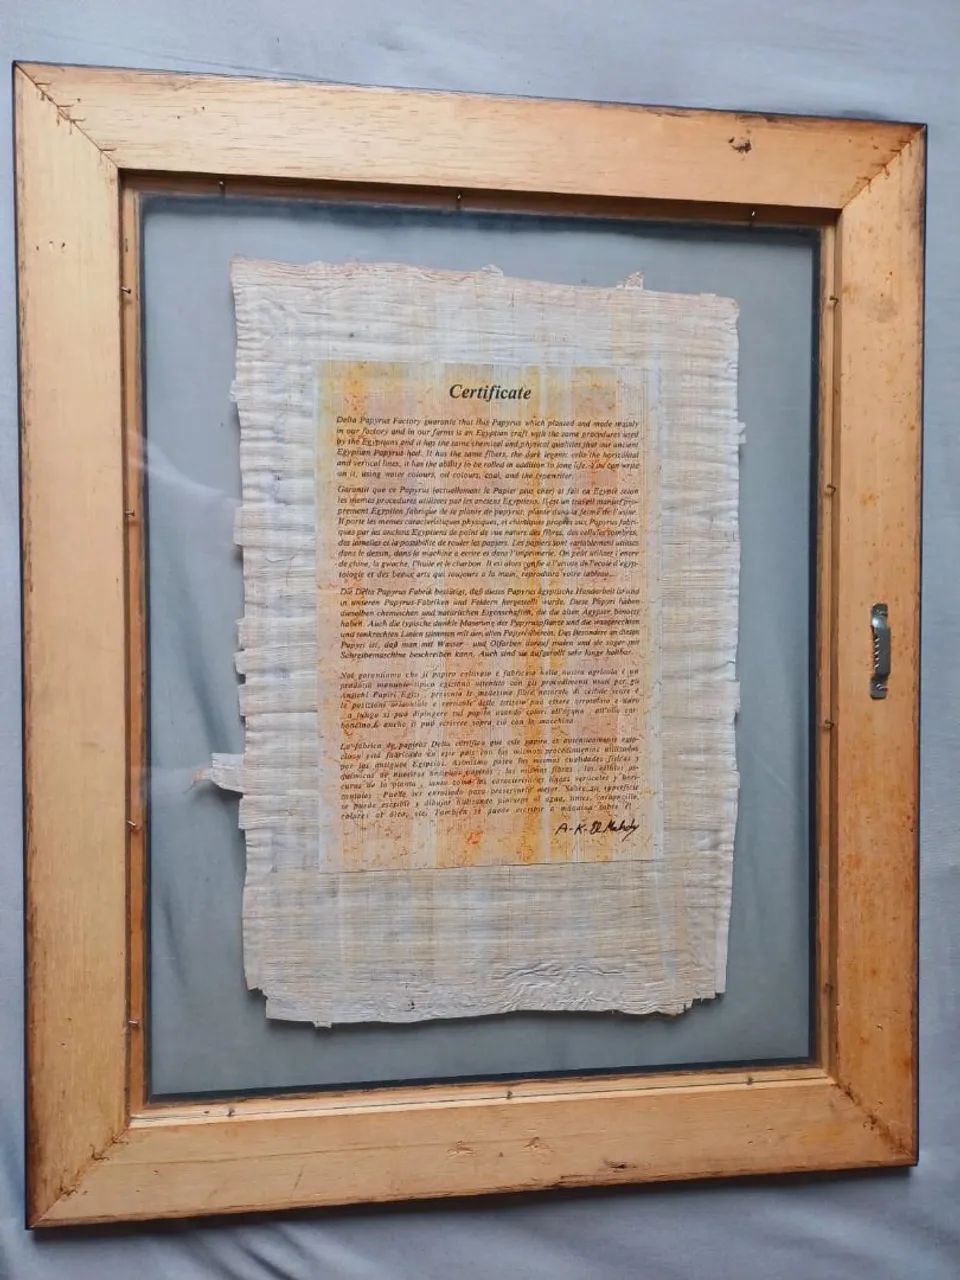 Certificate
Delta Papyrus Factory guarante that this Papyrus which planted and made mainly
in our factory and in our farms is an Egyptian craft with the same procedures used
by the Egyptians and it has the same chemical and physical qualities that our ancient
Egyptian Papyrus had. It has the same fibers, the dark organic cells the horizontal
and vertical lines, it has the ability to be rolled in addition to long life. You can write
on it, using water colours, oil colours, coal, and the typewriter.
Garantit que ce Papyrus (actuellement le Papier peu cher) si fait en Egypte selon
les memes procedures utilisees par les anciens Egyptiens. Il est un travail manuel pro-
prement Egyptien fabrique de la plante de papyrus, plante dans la ferme de l'usine.
Il porte les memes caracteristiques physiques, et chimiques propres aux Papyrus fabri-
ques par les anciens Egyptiens de point de vue nature des fibres, des cellules sombres,
des lamelles et la possibilite de rouler les papiers. Les papiers sont variablement utilises
dans le dessin, dans la machine a ecrire et dans l'imprimerie. On peut utiliser l'encre
de chine, la guache, l'huile et le charbon. Il est alors confie a l'artiste de l'ecole d'egyp-
tologie et des beaux arts qui toujours a la main, reproduira votre tableau...
Die Delta Papyrus Fabrik bestätigt, daß dieses Papyrus ägyptische Handarbeit ist und
in unseren Papyrus-Fabriken und Feldern hergestellt wurde. Diese Papyri haben
dieselben chemischen und natürlichen Eigenschaften, die die alten Ägypter, benutzt
haben. Auch die typische dunkle Maserung der Papyruspflanze und die waagerechten
und senkrechten Linien stimmen mit den alten Papyri überein. Das Besondere an diesen
Papyri ist, daß man mit Wasser - und Ölfarben darauf malen und sie sogar mit
Schreibemaschine beschreiben kann. Auch sind sie aufgerollt sehr lange haltbar.
Noi garantiamo che il papiro coltivato e fabricato nella nostra agricola è un
prodotto manuale tipico egiziano ottenuto con gli procedimenti usati per gli
Antichi Papiri Egizi, presenta le medesime fibre naturale di cellule scure e
le posizioni orizontale e verticale delle strisce può essere arrotolato e duro
a lungo si può dipingere sul papiro usando colori all'acqua, all'olio car-
boncino.E anche si può scrivere sopra ciò con la macchina.
La fabrica de papiros Delta certifica que este papiro es autenticamente egip-
cio y está fabricado en este pais con los mismos procedimientos utilizados
por los antiguos Egipcios. Asimismo posee las mismas cualidades fisicas y
quimicas de nuestros antiguos papiros; las mismas fibras, las células os-
curas de la planta, tanto como las caracteristicas lineas verticales y hori-
zontales. Puede ser enrolado para preservarlo mejor. Sobre su superficie
se puede escribir y dibujar utilizando pinturas al agua, tintas, carboncillo,
colores al óleo, etc. También se puede escribir a máquina sobre él.
A-K-El Mahdy